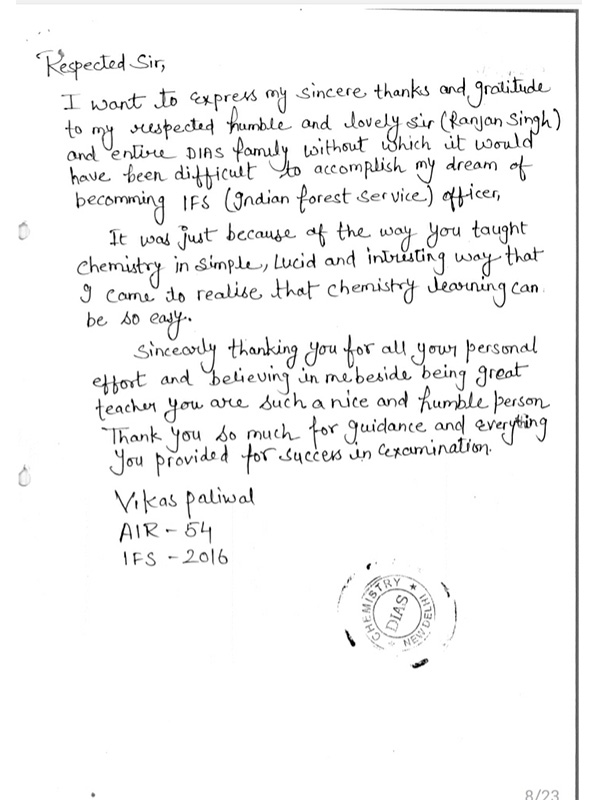 Respected Sir,
I want to express my sincere thanks and gratitude
to my respected humble and lovely sir (Ranjan Singh)
and entire DIAS family without which it would
have been difficult to accomplish my dream of
becomming IFS (Indian forest service) officer,
It was just because of the way you taught
chemistry in simple, Lucid and intristing way that
I came to realise that chemistry learning can
be so easy.
Sincearly thanking you for all your personal
effort and believing in me beside being great
teacher you are such a nice and humble person
Thank you so much for guidance and everything
you provided for success in examination.
Vikas paliwal
AIR - 54
IFS - 2016
CHEMISTRY ★ NEW DELHI
DIAS
8/23